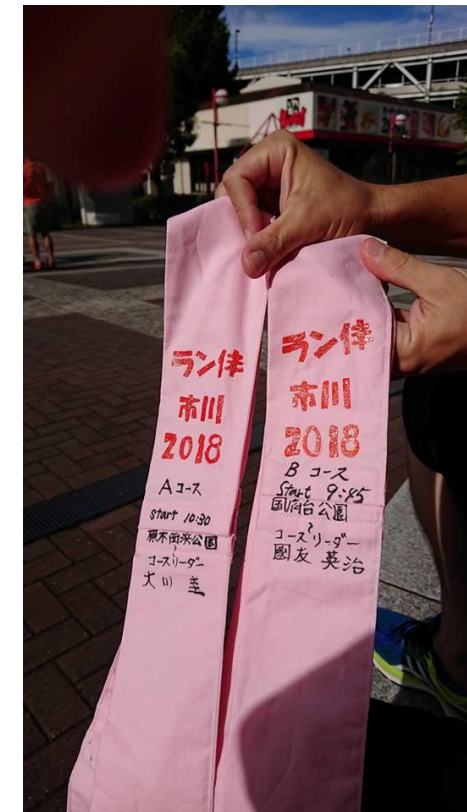 ラン伴
市川
2018
Aコース
start 10:30
原木西浜公園
〜
コースリーダー
大川 圭
ラン伴
市川
2018
B コース
Start 9:45
国府台公園
〜
コースリーダー
國友 英治